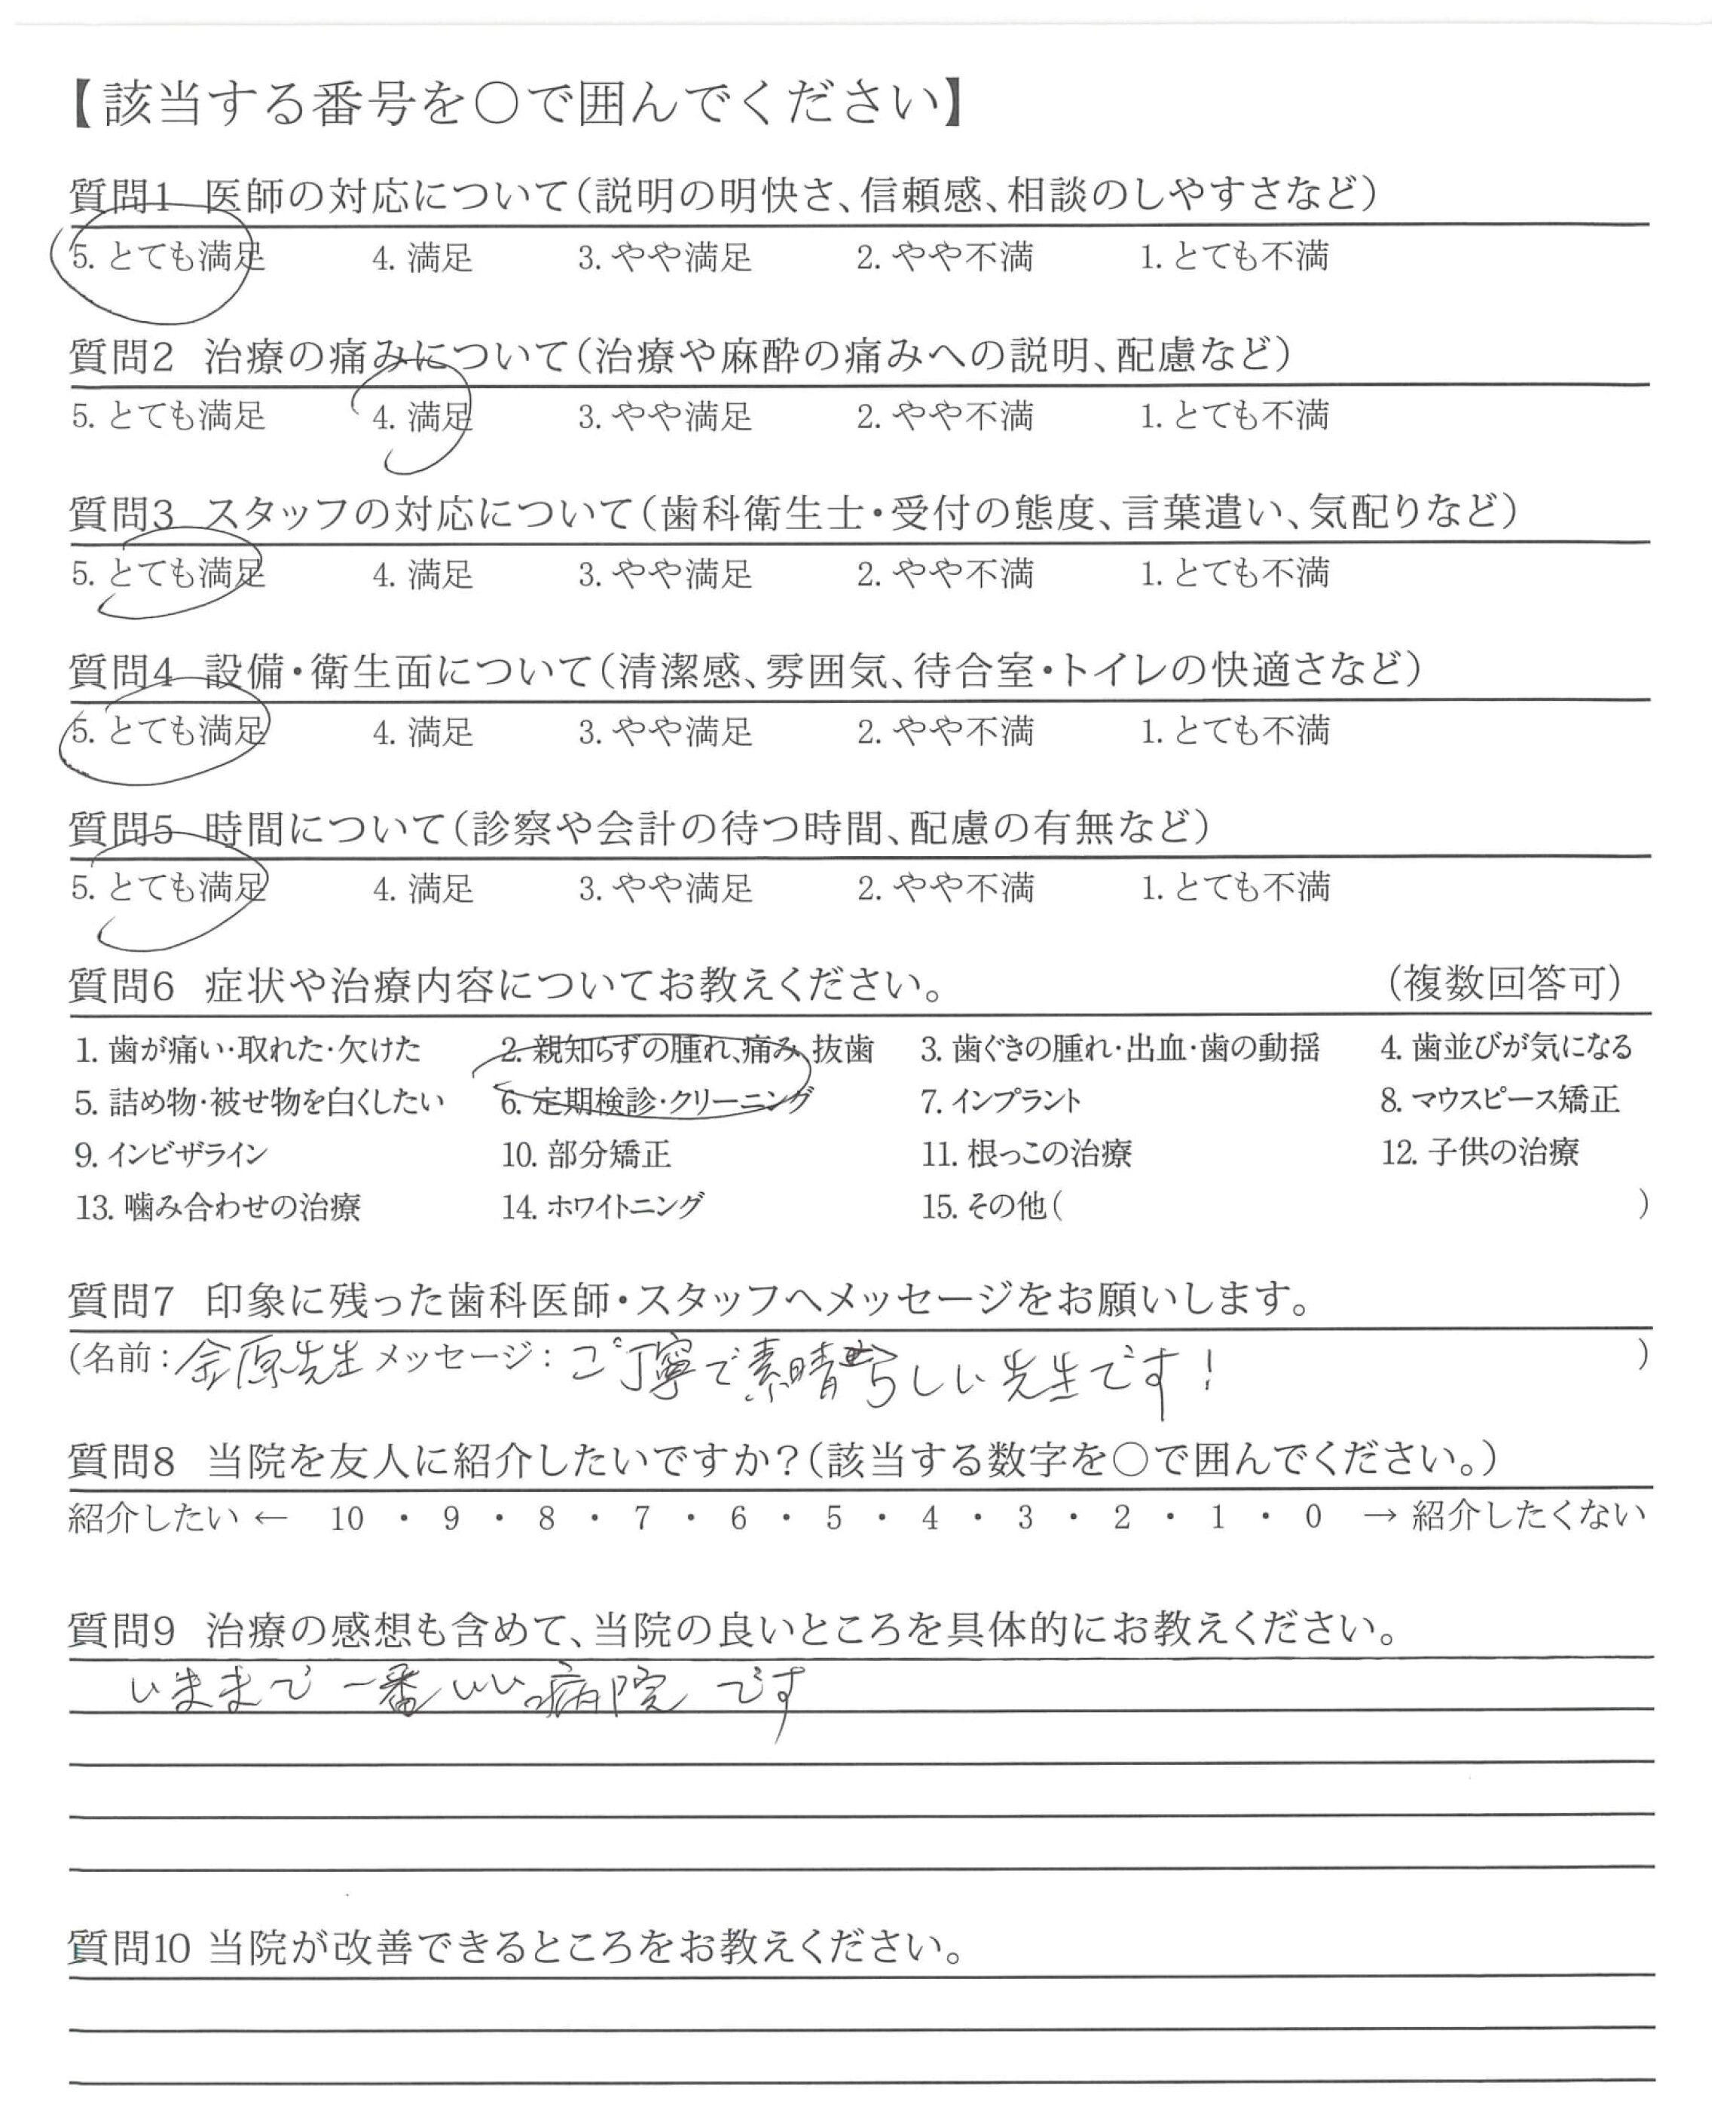 【該当する番号を○で囲んでください】
質問1 医師の対応について(説明の明快さ、信頼感、相談のしやすさなど)
5. とても満足 4. 満足 3. やや満足 2. やや不満 1. とても不満
質問2 治療の痛みについて(治療や麻酔の痛みへの説明、配慮など)
5. とても満足 4. 満足 3. やや満足 2. やや不満 1. とても不満
質問3 スタッフの対応について(歯科衛生士・受付の態度、言葉遣い、気配りなど)
5. とても満足 4. 満足 3. やや満足 2. やや不満 1. とても不満
質問4 設備・衛生面について(清潔感、雰囲気、待合室・トイレの快適さなど)
5. とても満足 4. 満足 3. やや満足 2. やや不満 1. とても不満
質問5 時間について(診察や会計の待つ時間、配慮の有無など)
5. とても満足 4. 満足 3. やや満足 2. やや不満 1. とても不満
質問6 症状や治療内容についてお教えください。 (複数回答可)
1. 歯が痛い・取れた・欠けた 2. 親知らずの腫れ、痛み、抜歯 3. 歯ぐきの腫れ・出血・歯の動揺 4. 歯並びが気になる
5. 詰め物・被せ物を白くしたい 6. 定期検診・クリーニング 7. インプラント 8. マウスピース矯正
9. インビザライン 10. 部分矯正 11. 根っこの治療 12. 子供の治療
13. 噛み合わせの治療 14. ホワイトニング 15. その他( )
質問7 印象に残った歯科医師・スタッフへメッセージをお願いします。
(名前：金原先生 メッセージ：ご丁寧で素晴らしい先生です！ )
質問8 当院を友人に紹介したいですか?(該当する数字を○で囲んでください。)
紹介したい ← 10 ・ 9 ・ 8 ・ 7 ・ 6 ・ 5 ・ 4 ・ 3 ・ 2 ・ 1 ・ 0 → 紹介したくない
質問9 治療の感想も含めて、当院の良いところを具体的にお教えください。
いままで一番いい病院です
質問10 当院が改善できるところをお教えください。